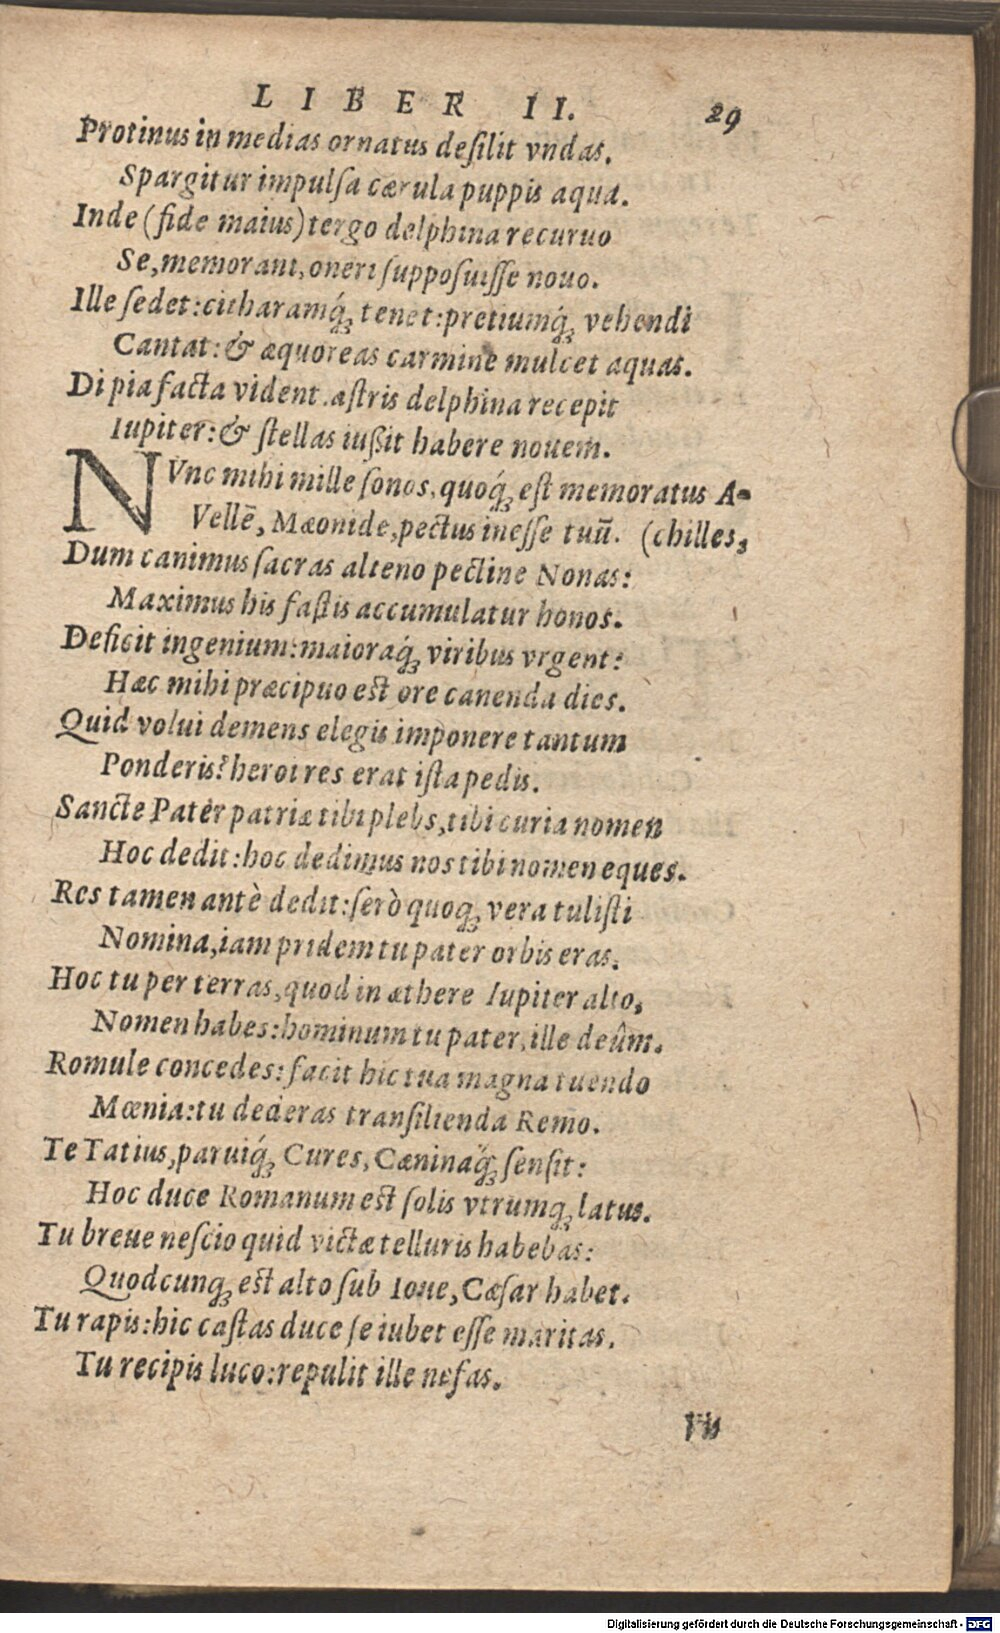 LIBER II. 29
Protinus in medias ornatus desilit vndas.
Spargitur impulsa cærula puppis aqua.
Inde (fide maius) tergo delphina recuruo
Se, memorant, oneri supposuisse nouo.
Ille sedet: citharamq́ꝫ tenet: pretiumq́ꝫ vehendi
Cantat: & æquoreas carmine mulcet aquas.
Di pia facta vident. astris delphina recepit
Iupiter: & stellas iußit habere nouem.
NVnc mihi mille sonos, quoq́ꝫ est memoratus A-
Vellē, Mæonide, pectus inesse tuū. (chilles,
Dum canimus sacras alteno pectine Nonas:
Maximus his fastis accumulatur honos.
Deficit ingenium: maioraq́ꝫ viribus vrgent:
Hæc mihi præcipuo est ore canenda dies.
Quid volui demens elegis imponere tantum
Ponderis? heroi res erat ista pedis.
Sancte Pater patriæ tibi plebs, tibi curia nomen
Hoc dedit: hoc dedimus nos tibi nomen eques.
Res tamen antè dedit: serò quoqꝫ vera tulisti
Nomina, iam pridem tu pater orbis eras.
Hoc tu per terras, quod in æthere Iupiter alto,
Nomen habes: hominum tu pater, ille deûm.
Romule concedes: facit hic tua magna tuendo
Mœnia: tu dederas transilienda Remo.
Te Tatius, paruiq́ꝫ Cures, Cæninaq́ꝫ sensit:
Hoc duce Romanum est solis vtrumqꝫ latus.
Tu breue nescio quid victæ telluris habebas:
Quodcunqꝫ est alto sub Ioue, Cæsar habet.
Tu rapis: hic castas duce se iubet esse maritas.
Tu recipis luco: repulit ille nefas.
Digitalisierung gefördert durch die Deutsche Forschungsgemeinschaft - DFG